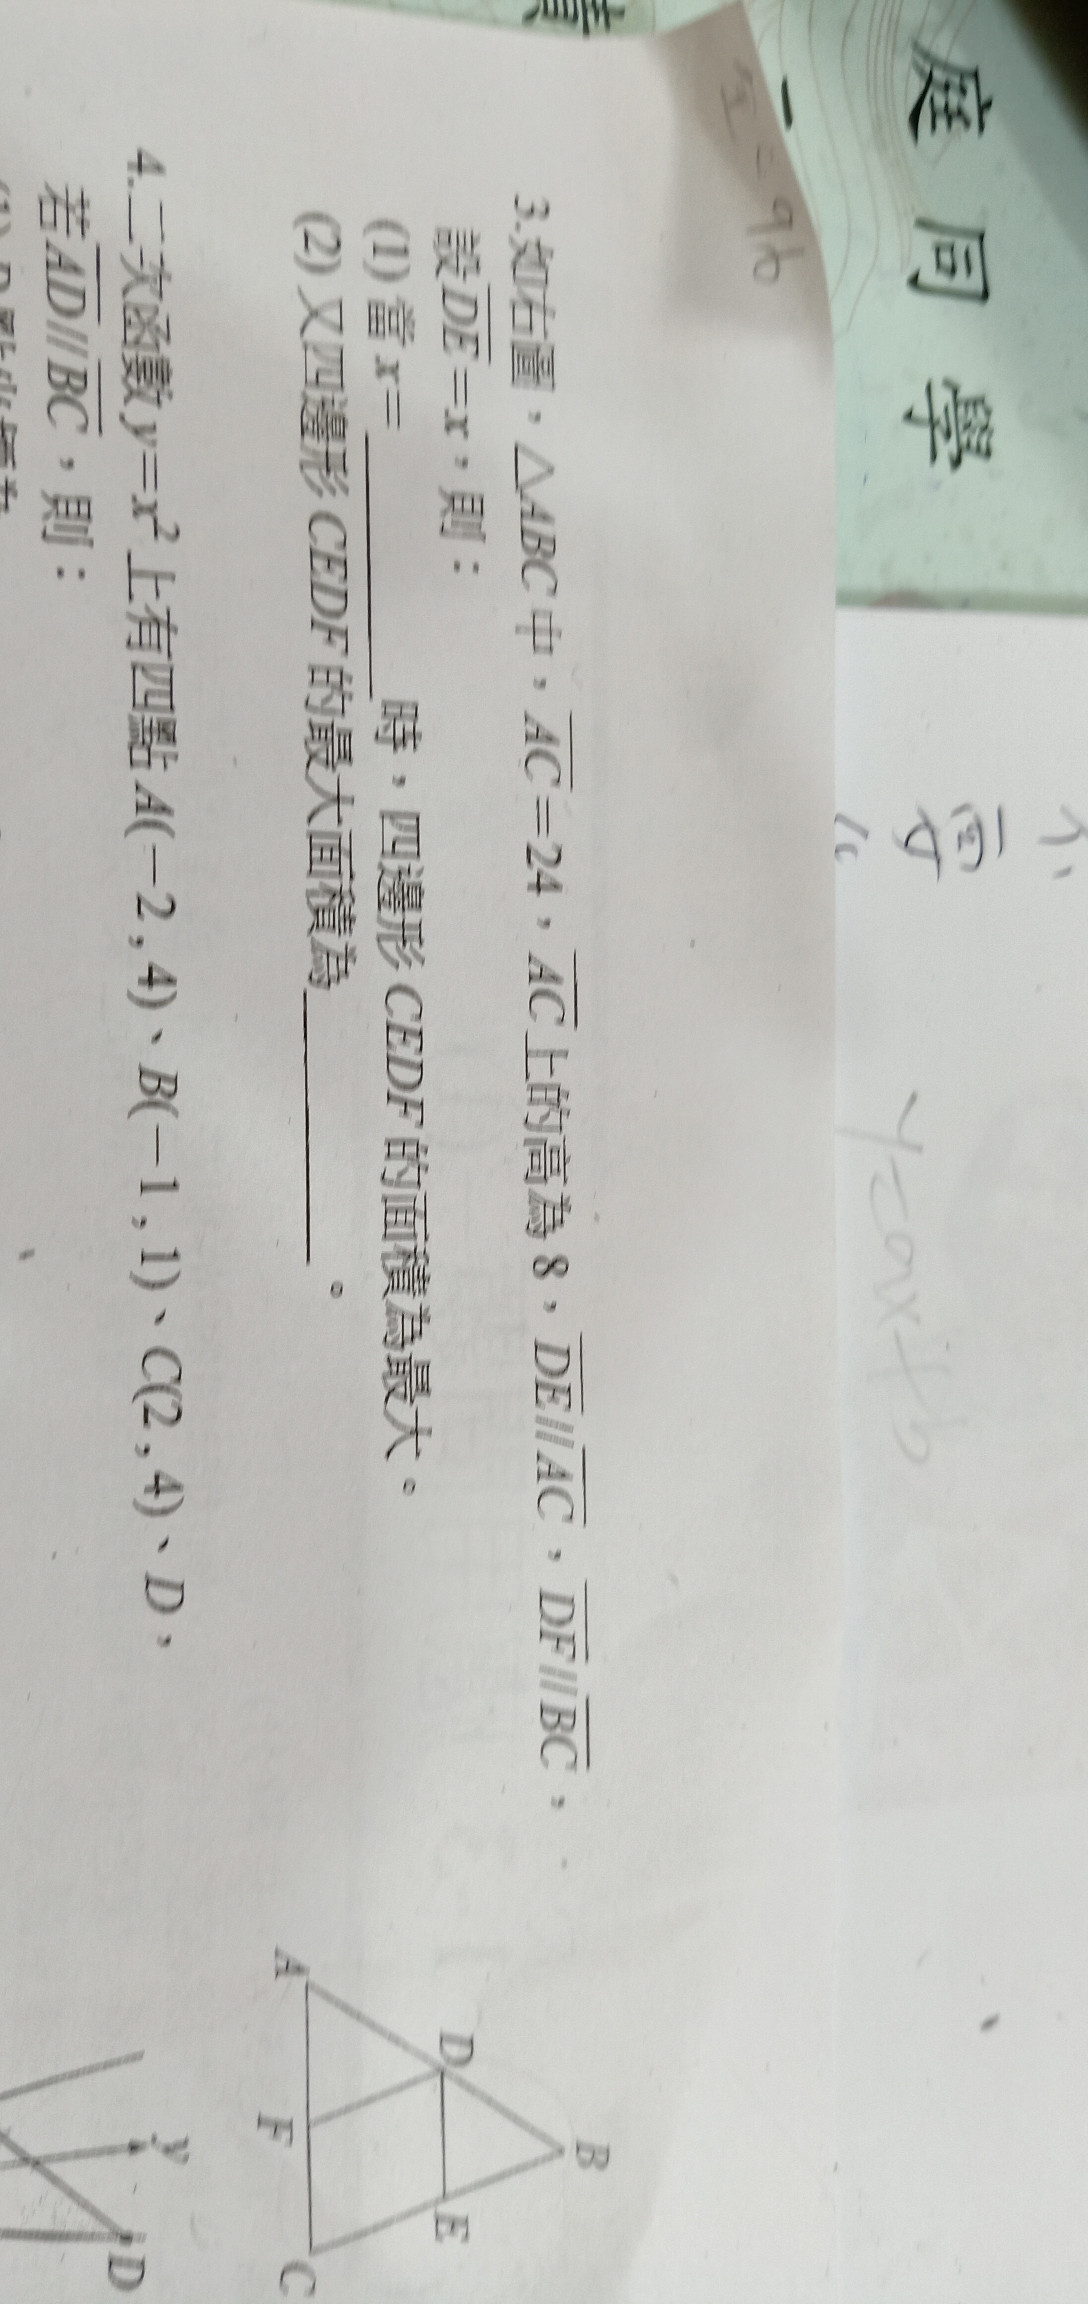 庭同學
y=ax+b
3.如右圖，△ABC中，AC=24，AC上的高為8，DE//AC，DF//BC，
設DE=x，則：
(1)當x=________時，四邊形CEDF的面積為最大。
(2)又四邊形CEDF的最大面積為________。
B
D E
A F C
4.二次函數y=x²上有四點A(−2,4)、B(−1,1)、C(2,4)、D，
若AD//BC，則：
y
D